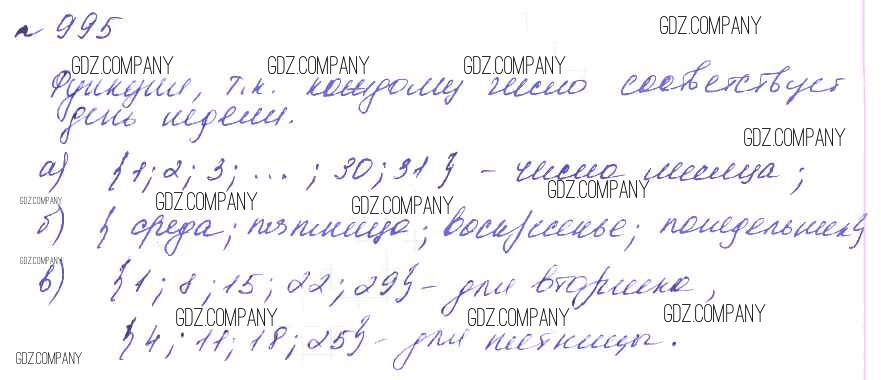 № 995
GDZ.COMPANY
GDZ.COMPANY GDZ.COMPANY GDZ.COMPANY
Функция, т.к. каждому число соответствует
день недели.
GDZ.COMPANY
а) {1; 2; 3; ...; 30; 31} - число месяца;
GDZ.COMPANY GDZ.COMPANY GDZ.COMPANY GDZ.COMPANY
б) { среда; пятница; воскресенье; понедельник}
GDZ.COMPANY
в) {1; 8; 15; 22; 29} - для вторника,
GDZ.COMPANY GDZ.COMPANY GDZ.COMPANY
{4; 11; 18; 25} - для пятницы.
GDZ.COMPANY